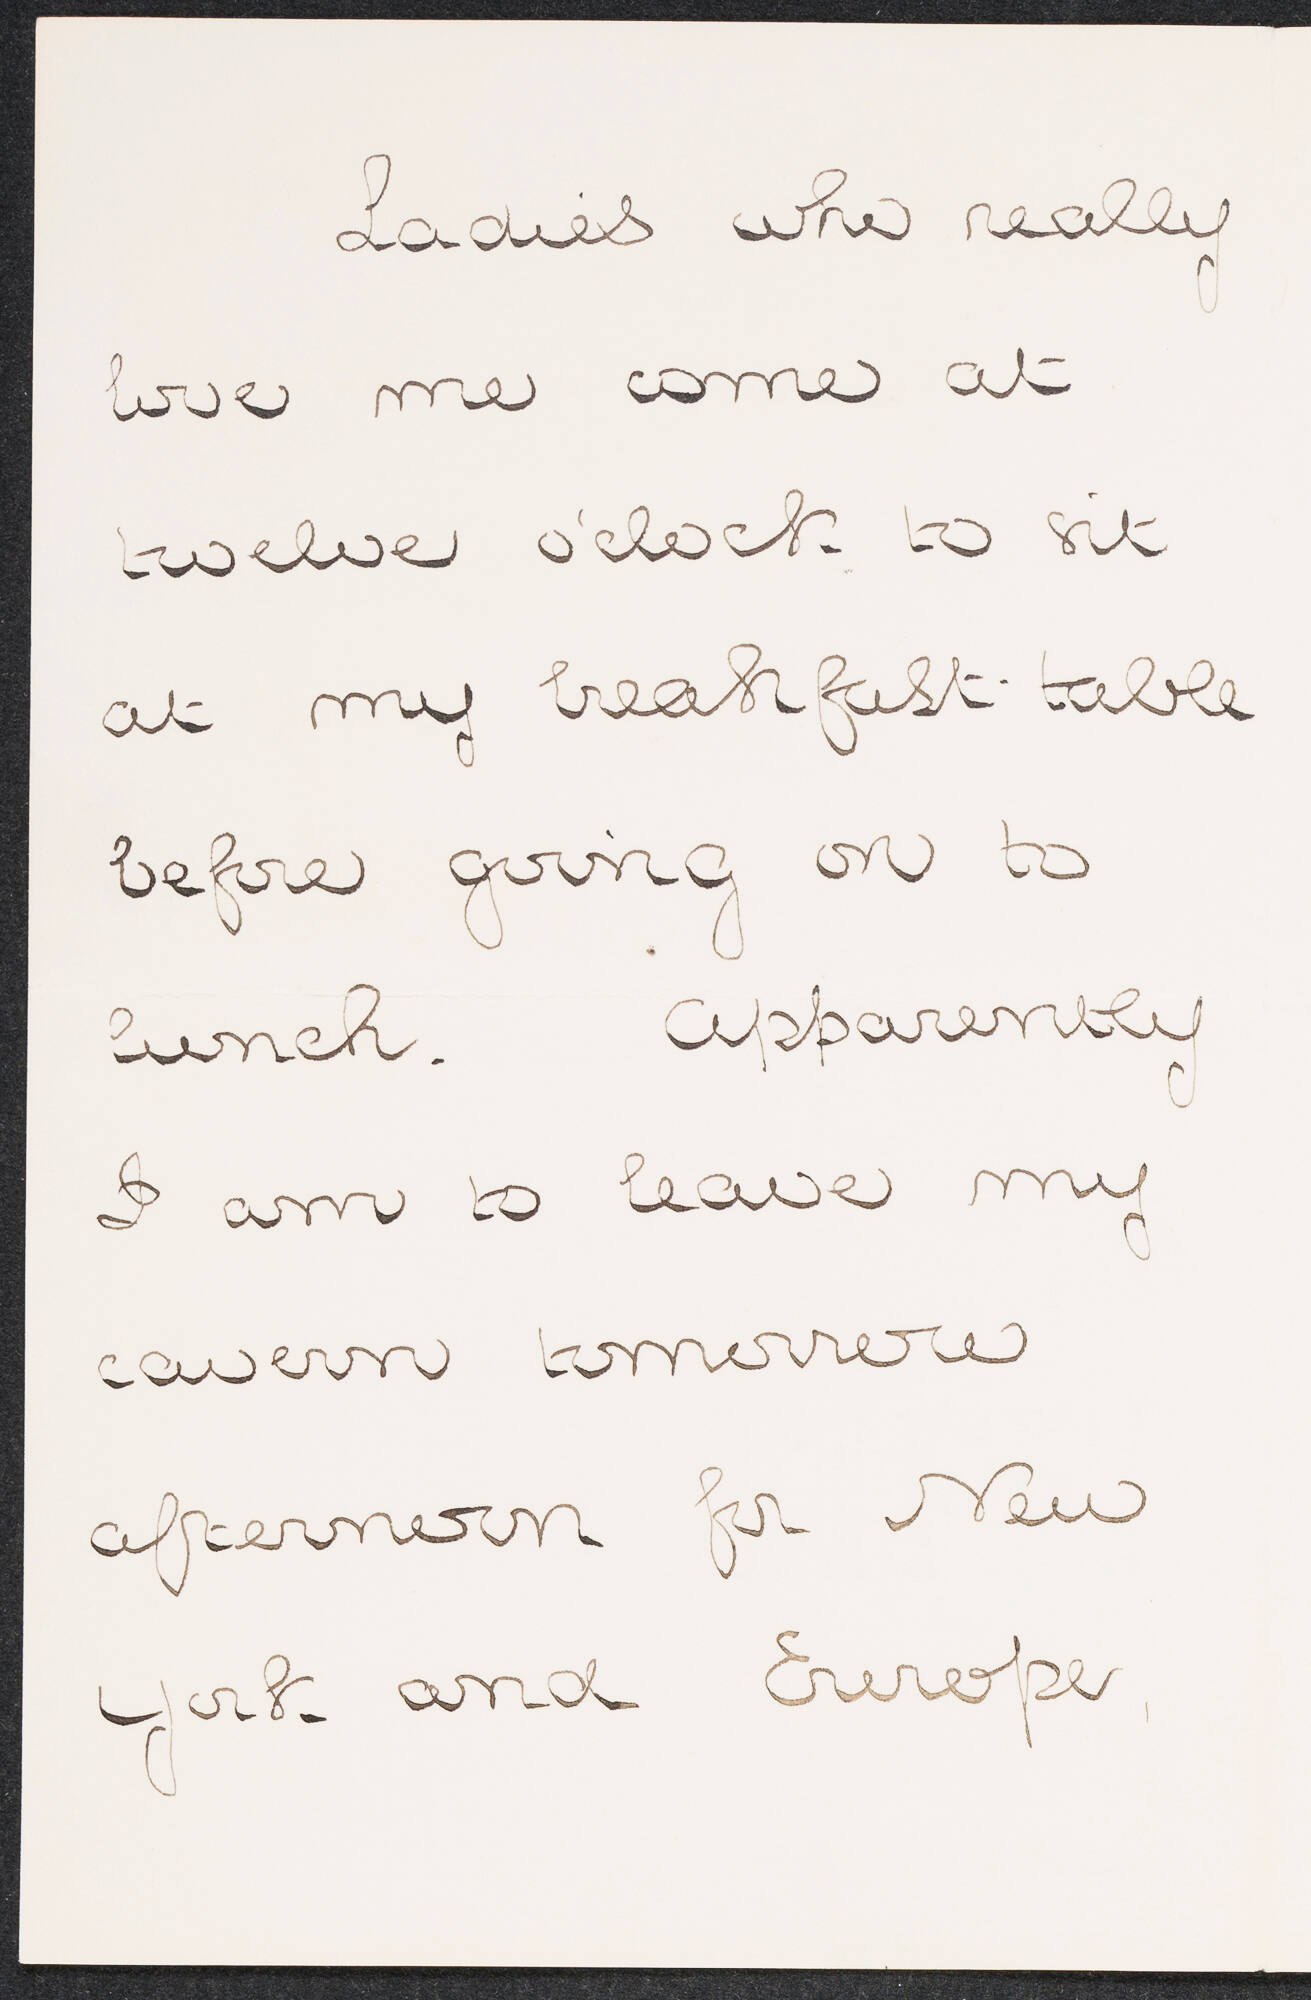 Ladies who really
love me come at
twelve o'clock to sit
at my breakfast-table
before going on to
lunch. Apparently
I am to leave my
cavern tomorrow
afternoon for New
York and Europe,